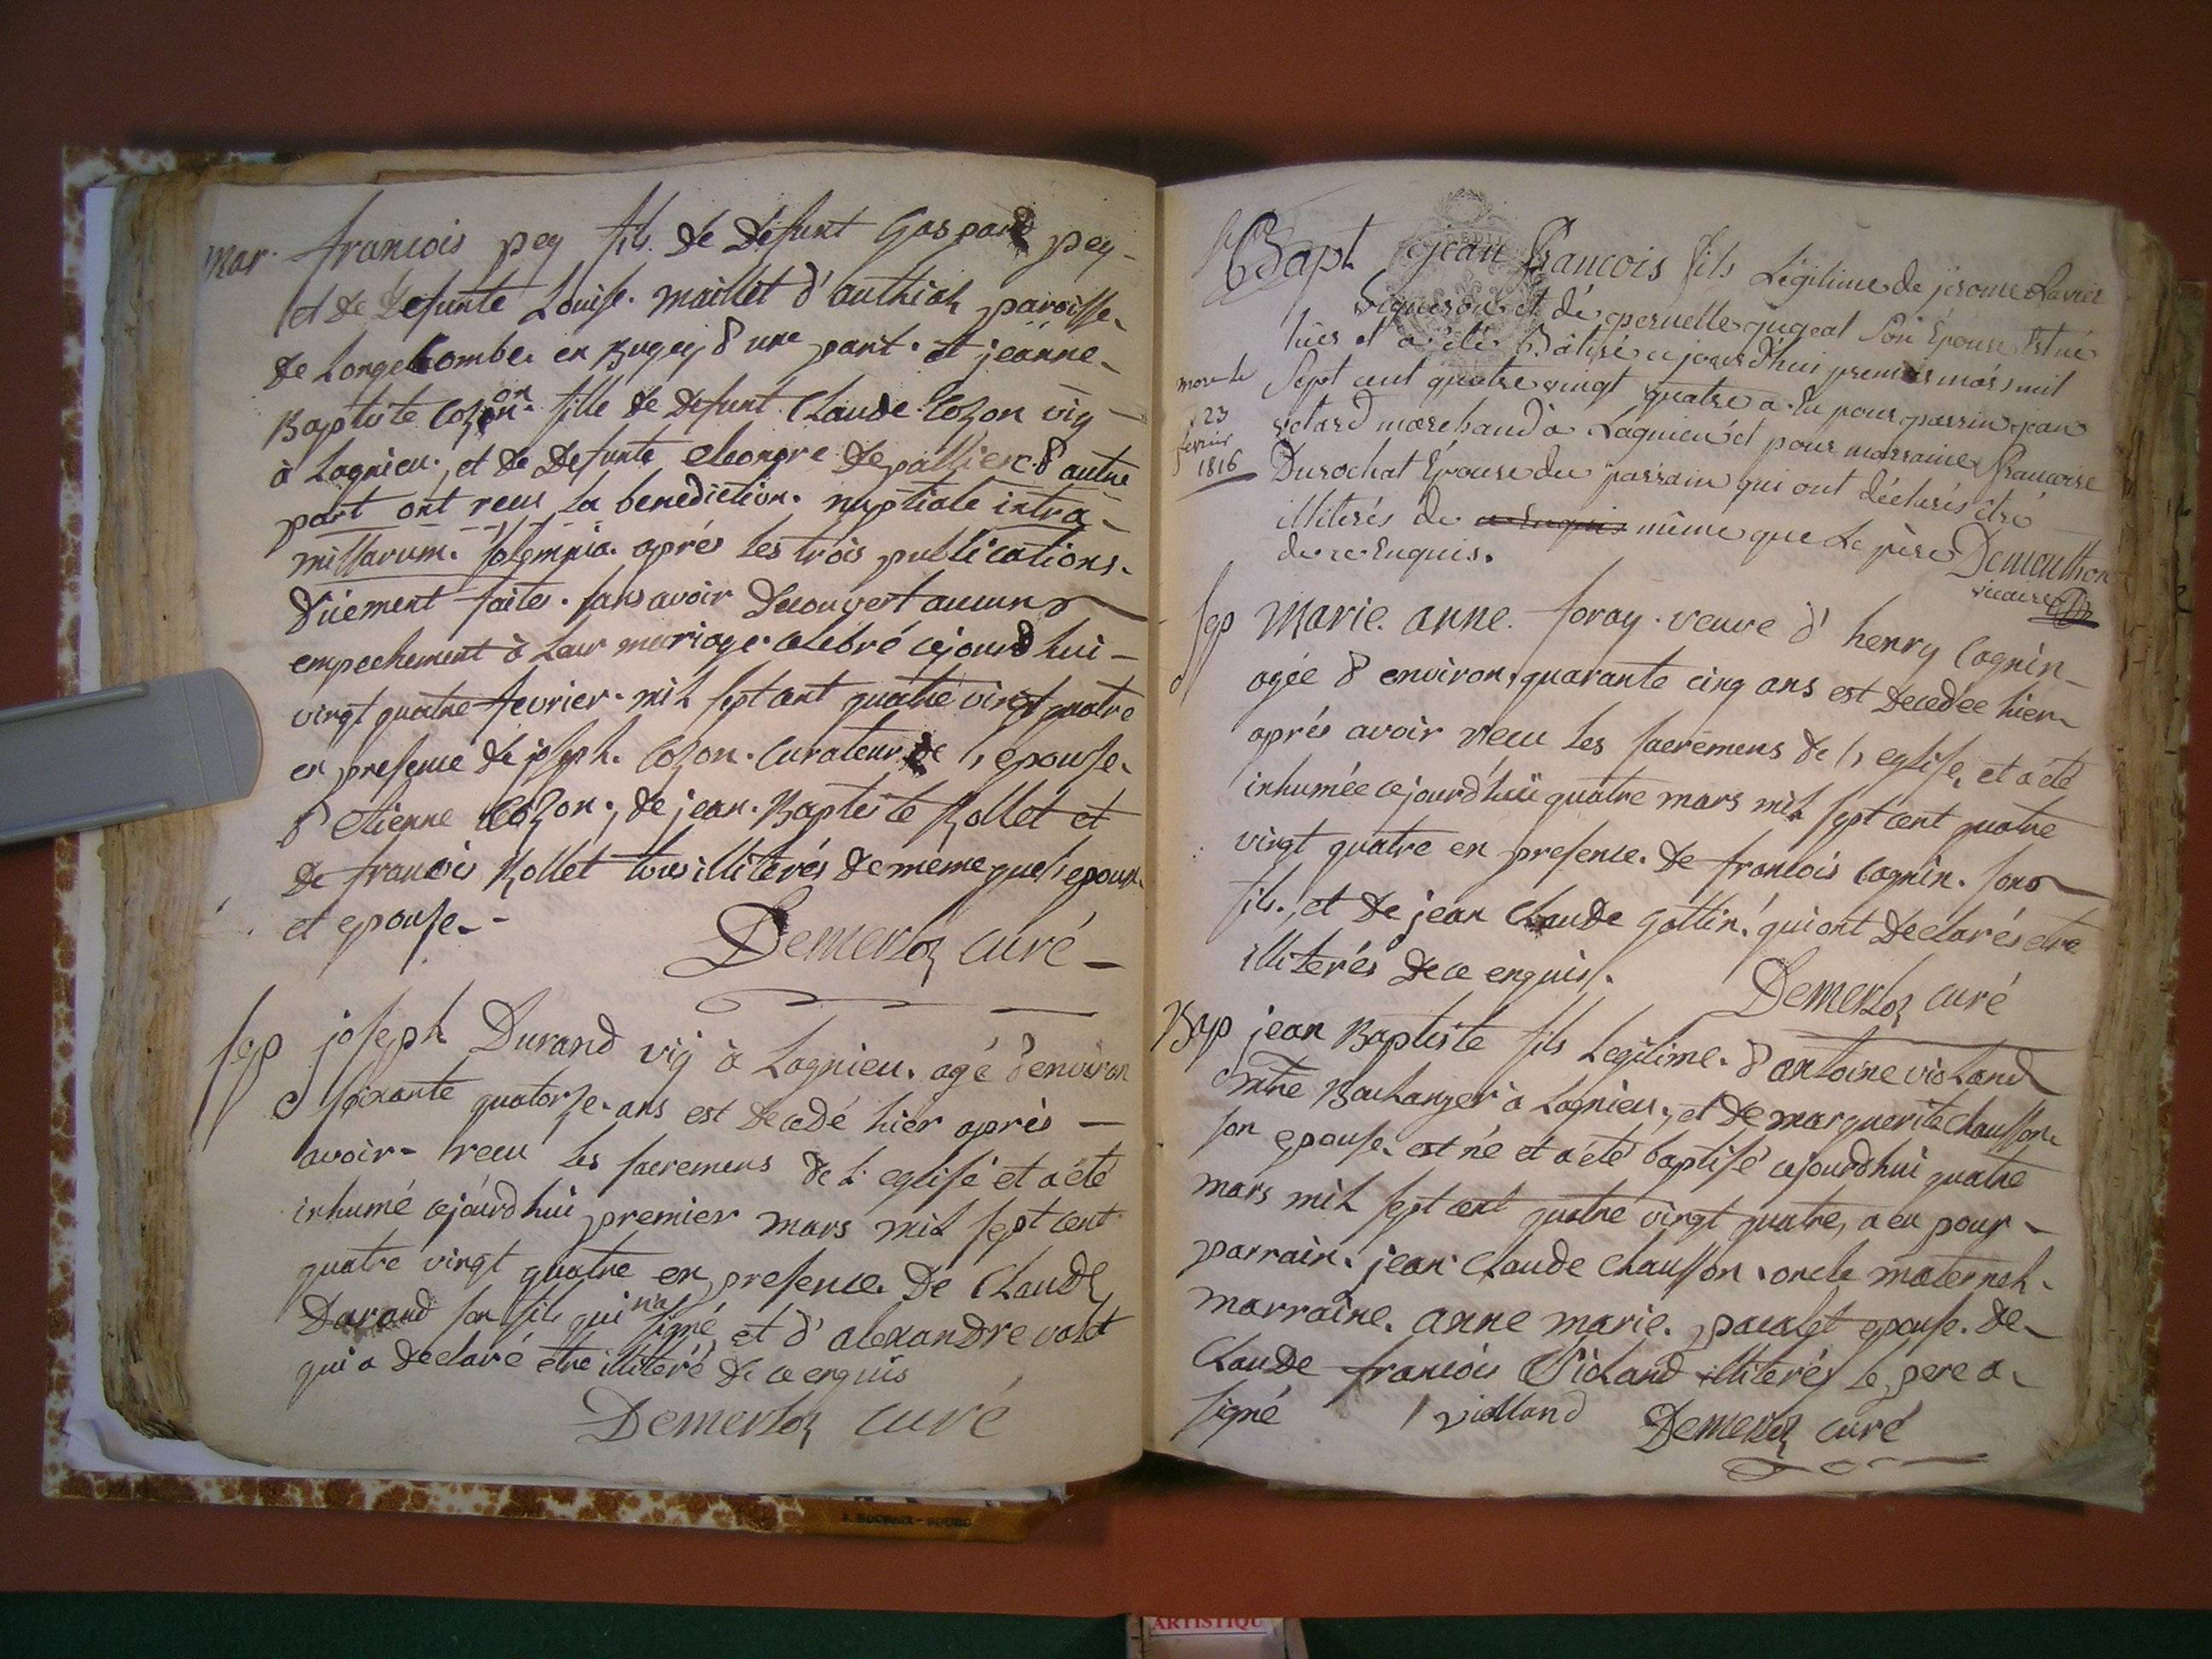 Mar. francois pey fils de defunt Gaspard pey
et de defunte Louise maillet d'authiah paroisse
de Longecombe en Bugey d'une part. et jeanne
Baptiste Cozon fille de defunt Claude Cozon vig
à Lagnieu, et de defunte eleonore depallier d'autre
part ont reçu la benediction nuptiale intra
missarum solempnia après les trois publications
düement faites. sans avoir decouvert aucun
empechement à leur mariage celebré cejourdhui
vingt quatre fevrier mil sept cent quatre vingt quatre
en presence de joseph Cozon curateur de l'epouse
d'etienne Cozon, de jean Baptiste Rollet et
de francois Rollet tous illiterés de même que l'epoux
et epouse.
Demerloz curé
sep joseph Durand vig à Lagnieu agé d'environ
soixante quatorze ans est decedé hier après
avoir reçu les sacremens de l'eglise et a été
inhumé cejourdhui premier mars mil sept cent
quatre vingt quatre en presence de Claude
Durand son fils qui n'a signé, et d'alexandre valet
qui a declaré être illiteré de ce enquis
Demerloz curé
Bapt jean francois fils Légitime de jerome Lavier
vigneron et de pernelle jugeat son Épouse Est né
hier et a été Batisé cejourd'hui premier mars mil
Sept cent quatre vingt quatre a eu pour parrin jean
retard marchand à Lagnieu et pour marraine francoise
Durochat Épouse du parrain qui ont déclarés être
illiterés de même que le père
de ce Enquis. Demouthon
vicaire
mort le
23
fevrier
1816
sep Marie anne foray veuve d'henry Cognin
agée d'environ quarante cinq ans est decedée hier
après avoir reçu les sacremens de l'eglise, et a été
inhumée cejourd'hui quatre mars mil sept cent quatre
vingt quatre en presence de francois Cognin son
fils, et de jean Claude gottin qui ont declarés etre
illiterés de ce enquis.
Demerloz curé
Bap jean Baptiste fils Legitime d'antoine violand
mtre Boulanger à Lagnieu, et de marguerite chausson
son epouse est né et a été baptisé cejourdhui quatre
mars mil sept cent quatre vingt quatre, a eu pour
parrain jean Claude Chausson oncle maternel
marraine anne marie pacalet epouse de
Claude francois Violand illiterés le pere a
signé violland Demerloz curé
ARTISTIQU